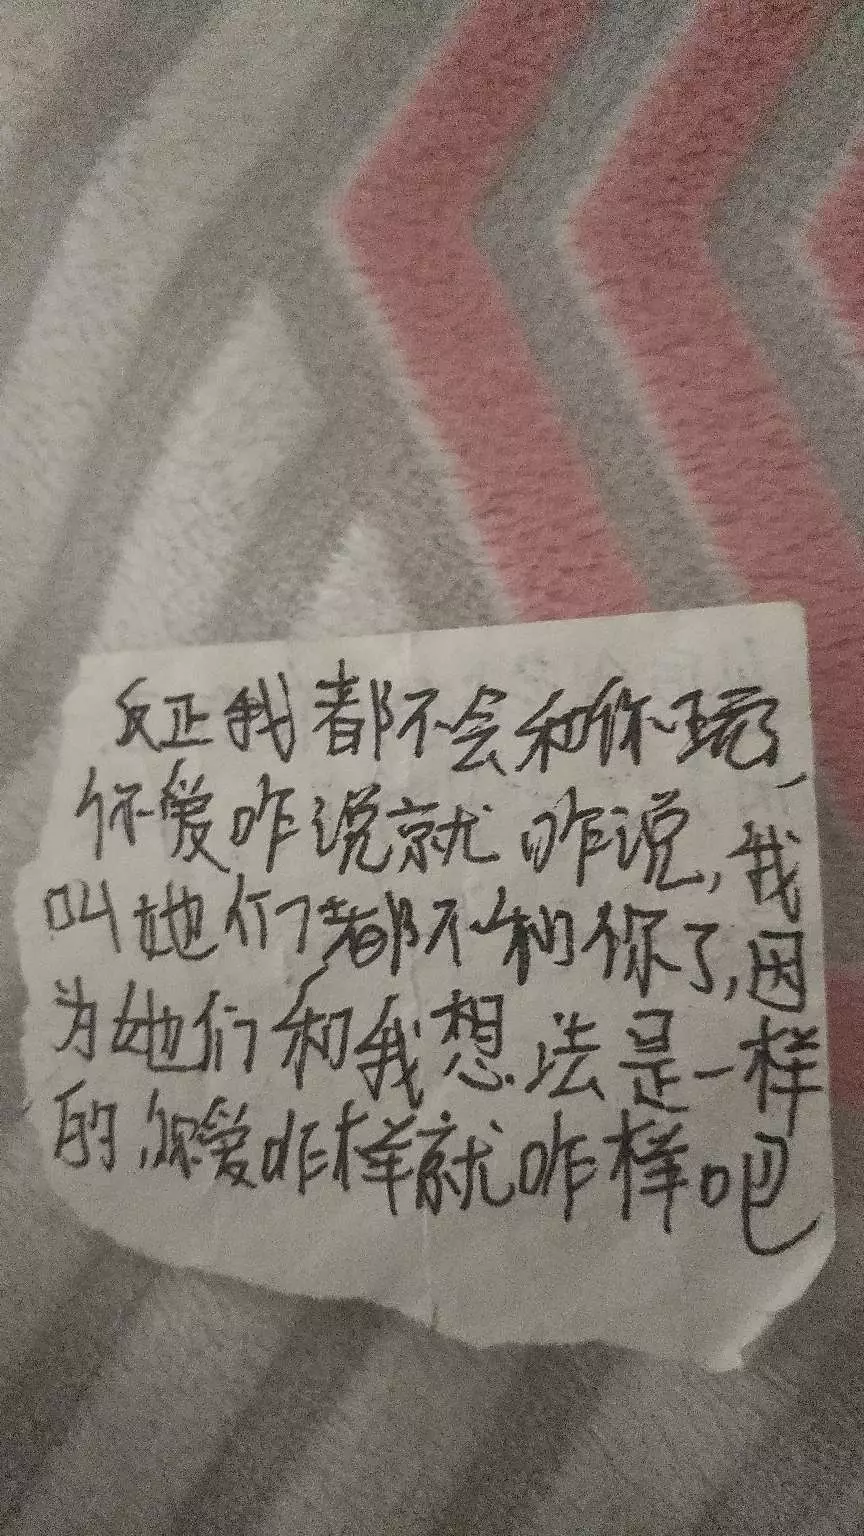 反正我都不会和你玩了,
你爱咋说就咋说,我
叫她们都不和你了,因
为她们和我想法是一样
的,你爱咋样就咋样吧